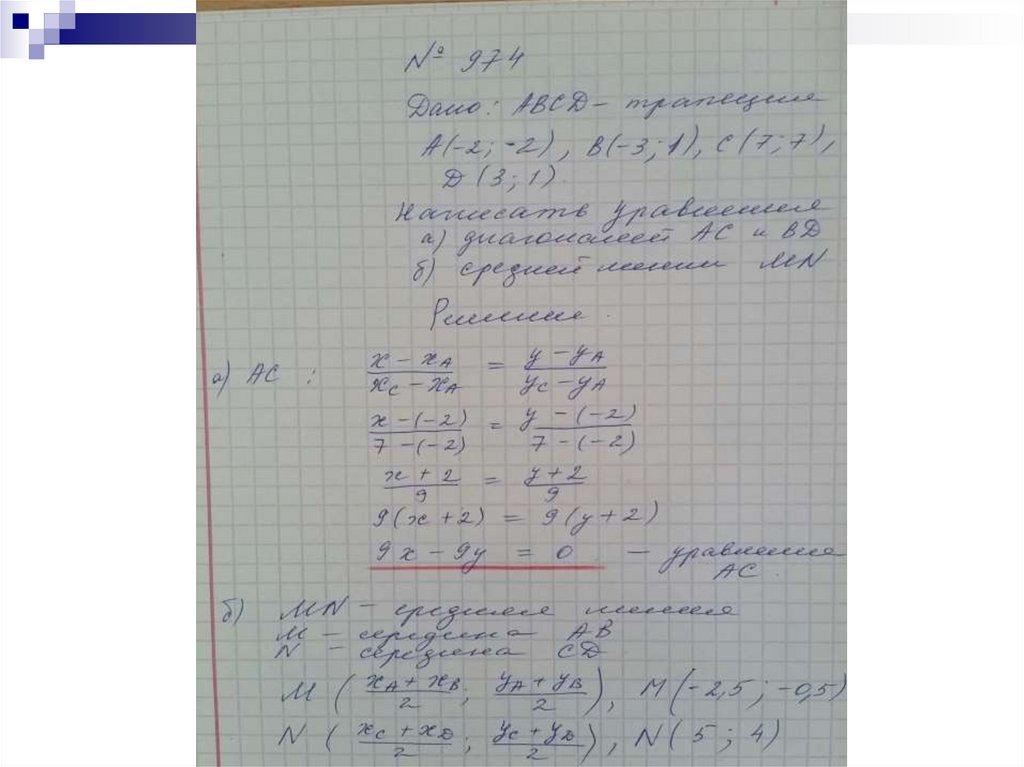 № 974
Дано: ABCD – трапеция
A(-2; -2), B(-3; 1), C(7; 7),
D(3; 1).
Написать уравнения
а) диагоналей AC и BD
б) средней линии MN
Решение.
а) AC : (x - x_A)/(x_C - x_A) = (y - y_A)/(y_C - y_A)
(x - (-2))/(7 - (-2)) = (y - (-2))/(7 - (-2))
(x + 2)/9 = (y + 2)/9
9(x + 2) = 9(y + 2)
9x - 9y = 0 – уравнение
AC.
б) MN – средняя линия
M – середина AB
N – середина CD
M ((x_A + x_B)/2; (y_A + y_B)/2), M(-2,5; -0,5)
N ((x_C + x_D)/2; (y_C + y_D)/2), N(5; 4)